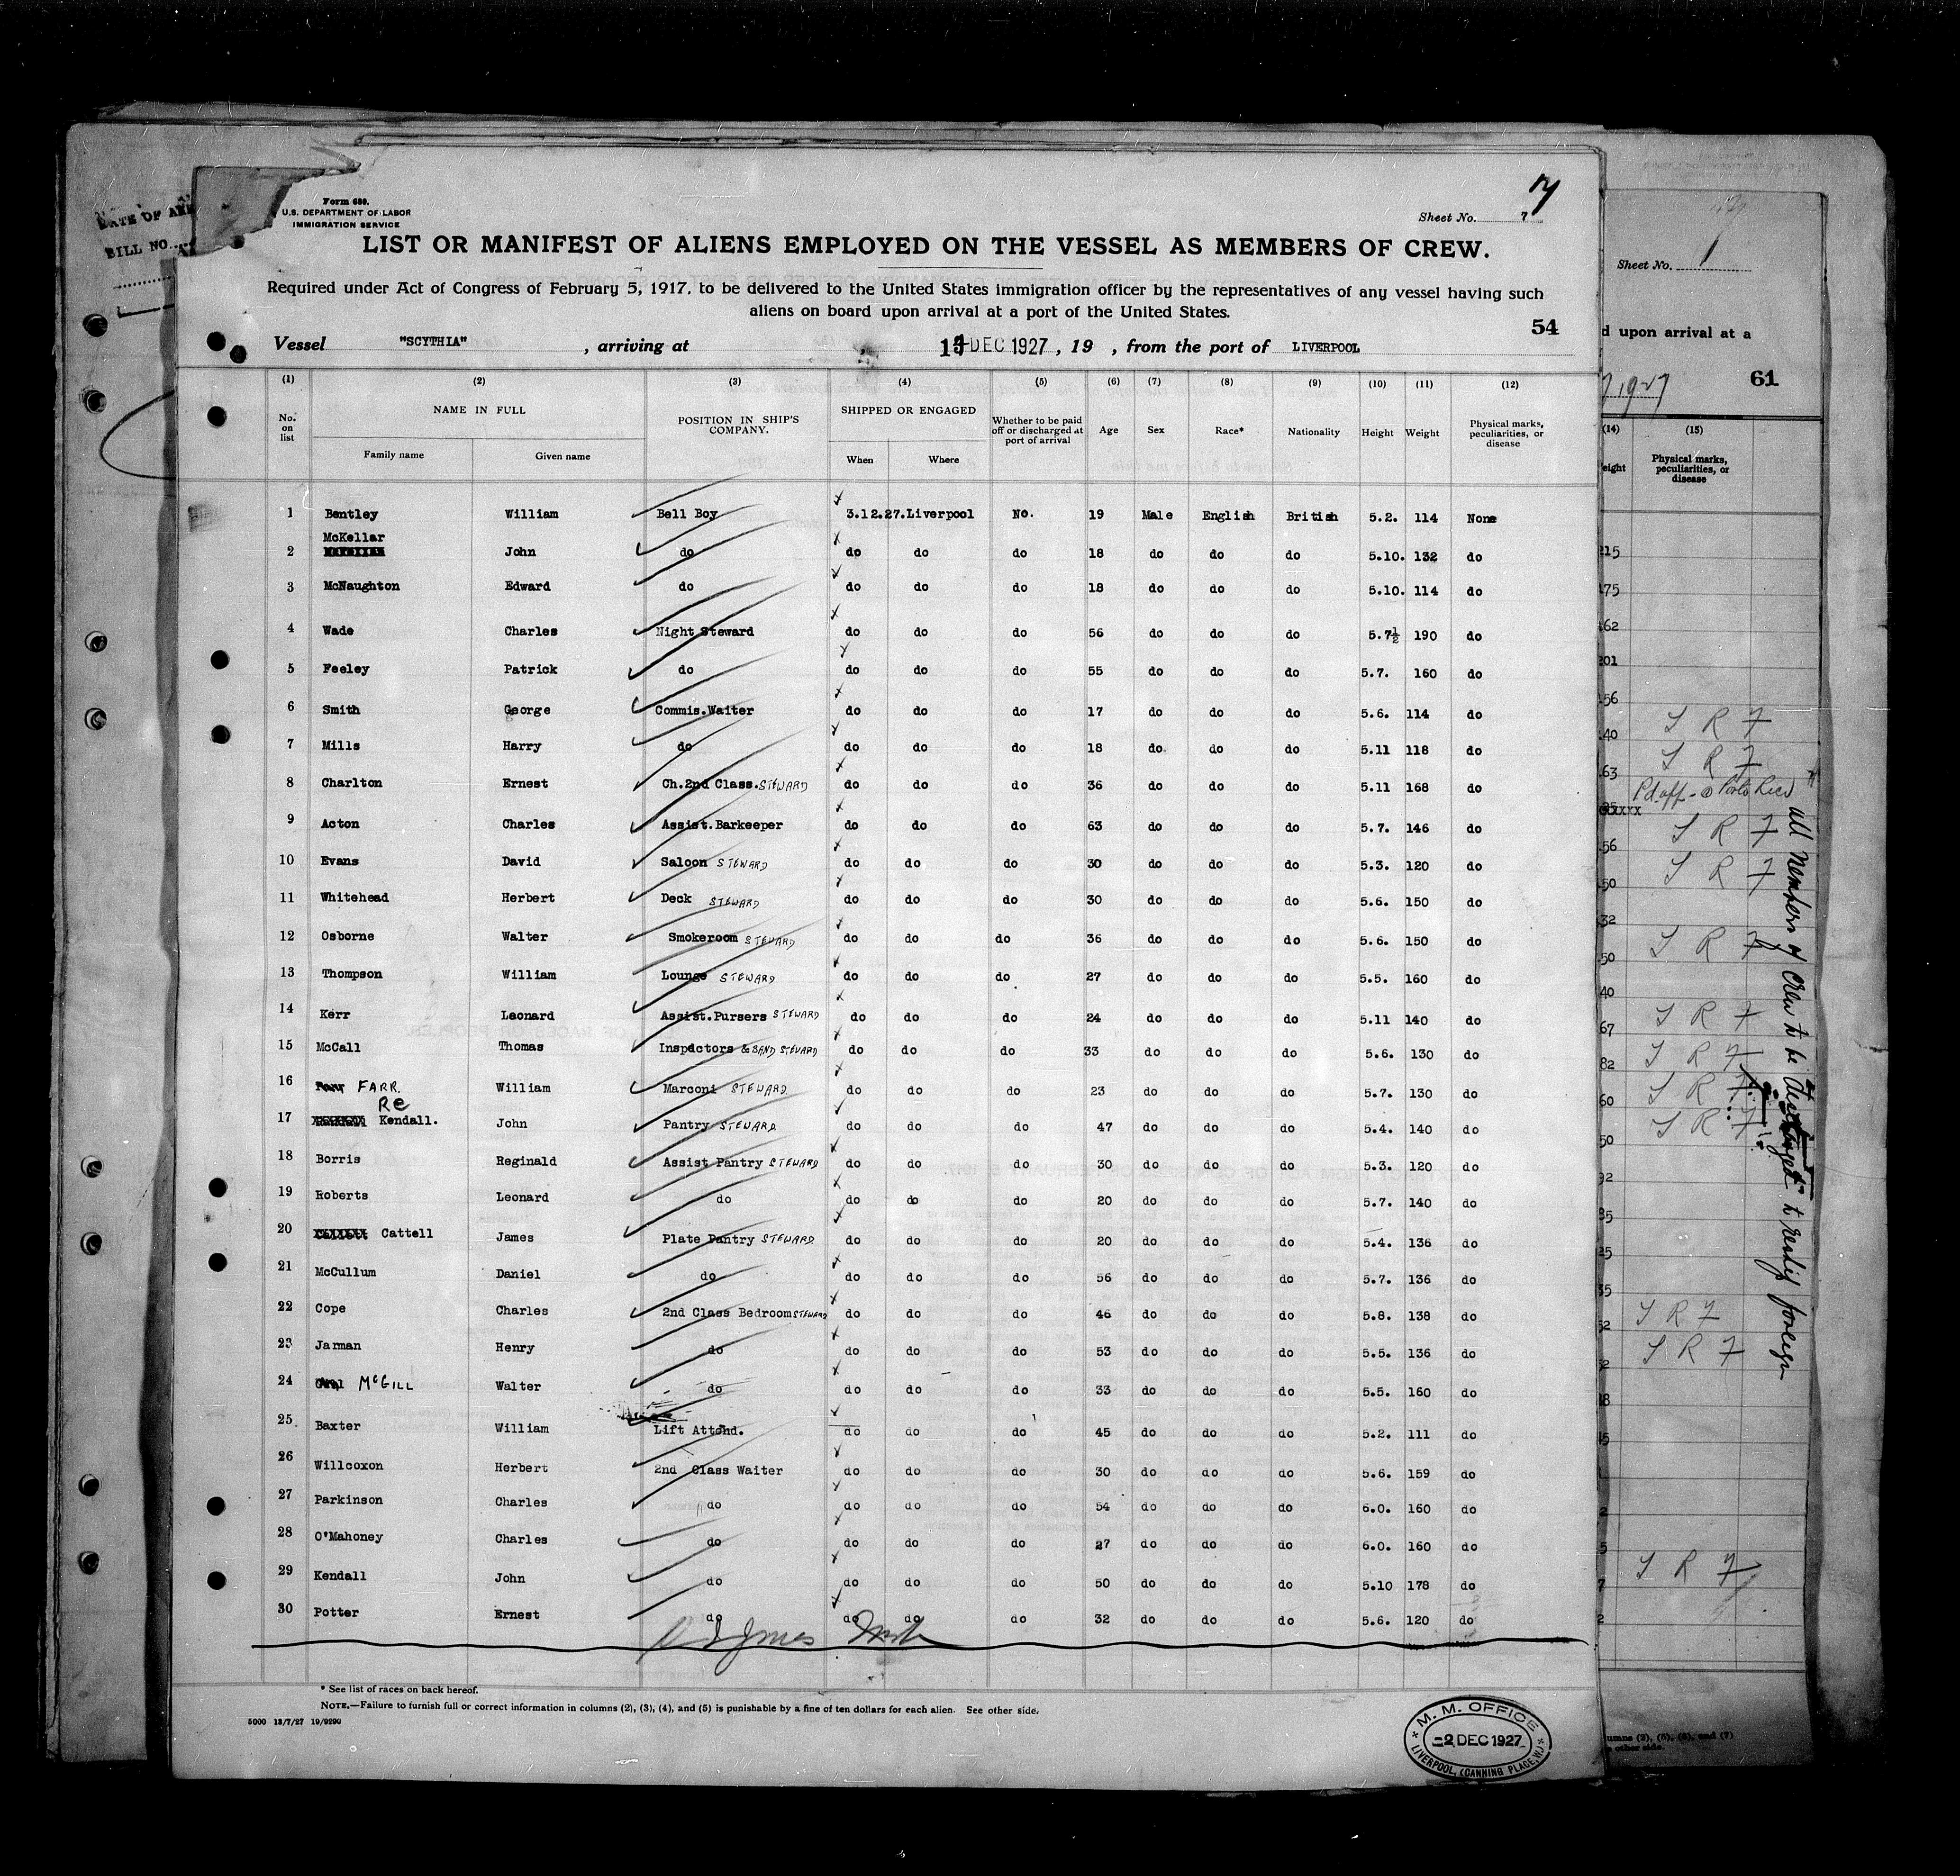 Form 680.
U.S. DEPARTMENT OF LABOR
IMMIGRATION SERVICE
Sheet No. 7
7
LIST OR MANIFEST OF ALIENS EMPLOYED ON THE VESSEL AS MEMBERS OF CREW.
Required under Act of Congress of February 5, 1917, to be delivered to the United States immigration officer by the representatives of any vessel having such
aliens on board upon arrival at a port of the United States.
54
Vessel "SCYTHIA" , arriving at DEC 1927 , 19 , from the port of LIVERPOOL
(1) (2) (3) (4) (5) (6) (7) (8) (9) (10) (11) (12)
No. on list NAME IN FULL POSITION IN SHIP'S COMPANY. SHIPPED OR ENGAGED Whether to be paid off or discharged at port of arrival Age Sex Race* Nationality Height Weight Physical marks, peculiarities, or disease
Family name Given name When Where
1 Bentley William Bell Boy 3.12.27. Liverpool No. 19 Male English British 5.2. 114 None
McKellar
2 John do do do do 18 do do do 5.10. 132 do
3 McNaughton Edward do do do do 18 do do do 5.10. 114 do
4 Wade Charles Night Steward do do do 56 do do do 5.7½ 190 do
5 Feeley Patrick do do do do 55 do do do 5.7. 160 do
6 Smith George Commis.Waiter do do do 17 do do do 5.6. 114 do
7 Mills Harry do do do do 18 do do do 5.11 118 do
8 Charlton Ernest Ch.2nd Class. STEWARD do do do 36 do do do 5.11 168 do
9 Acton Charles Assist.Barkeeper do do do 63 do do do 5.7. 146 do
10 Evans David Saloon STEWARD do do do 30 do do do 5.3. 120 do
11 Whitehead Herbert Deck STEWARD do do do 30 do do do 5.6. 150 do
12 Osborne Walter Smokeroom STEWARD do do do 36 do do do 5.6. 150 do
13 Thompson William Lounge STEWARD do do do 27 do do do 5.5. 160 do
14 Kerr Leonard Assist.Pursers STEWARD do do do 24 do do do 5.11 140 do
15 McCall Thomas Inspectors & BAND STEWARD do do do 33 do do do 5.6. 130 do
16 FARR. William Marconi STEWARD do do do 23 do do do 5.7. 130 do
Re
17 Kendall. John Pantry STEWARD do do do 47 do do do 5.4. 140 do
18 Borris Reginald Assist Pantry STEWARD do do do 30 do do do 5.3. 120 do
19 Roberts Leonard do do do do 20 do do do 5.7. 140 do
20 Cattell James Plate Pantry STEWARD do do do 20 do do do 5.4. 136 do
21 McCullum Daniel do do do do 56 do do do 5.7. 136 do
22 Cope Charles 2nd Class Bedroom STEWARD do do do 46 do do do 5.8. 138 do
23 Jarman Henry do do do do 53 do do do 5.5. 136 do
24 McGILL Walter do do do do 33 do do do 5.5. 160 do
25 Baxter William Lift Attend. do do do 45 do do do 5.2. 111 do
26 Willcoxon Herbert 2nd Class Waiter do do do 30 do do do 5.6. 159 do
27 Parkinson Charles do do do do 54 do do do 6.0. 160 do
28 O'Mahoney Charles do do do do 27 do do do 6.0. 160 do
29 Kendall John do do do do 50 do do do 5.10 178 do
30 Potter Ernest do do do do 32 do do do 5.6. 120 do
* See list of races on back hereof.
NOTE.—Failure to furnish full or correct information in columns (2), (3), (4), and (5) is punishable by a fine of ten dollars for each alien. See other side.
5000 13/7/27 19/9290
M. M. OFFICE
2 DEC 1927
LIVERPOOL, (CANNING PLACE, W)
BILL NO.
Sheet No. 1
d upon arrival at a
61
(14) (15)
eight Physical marks, peculiarities, or disease
S R F
S R F
Pd off - @ Porto Rico
S R F
S R F
S R F
S R F
S R F
S R F
S R F
S R F
S R F
S R F
all members of crew to be to reship foreign
umns (2), (6), (8), and (7)
other side.